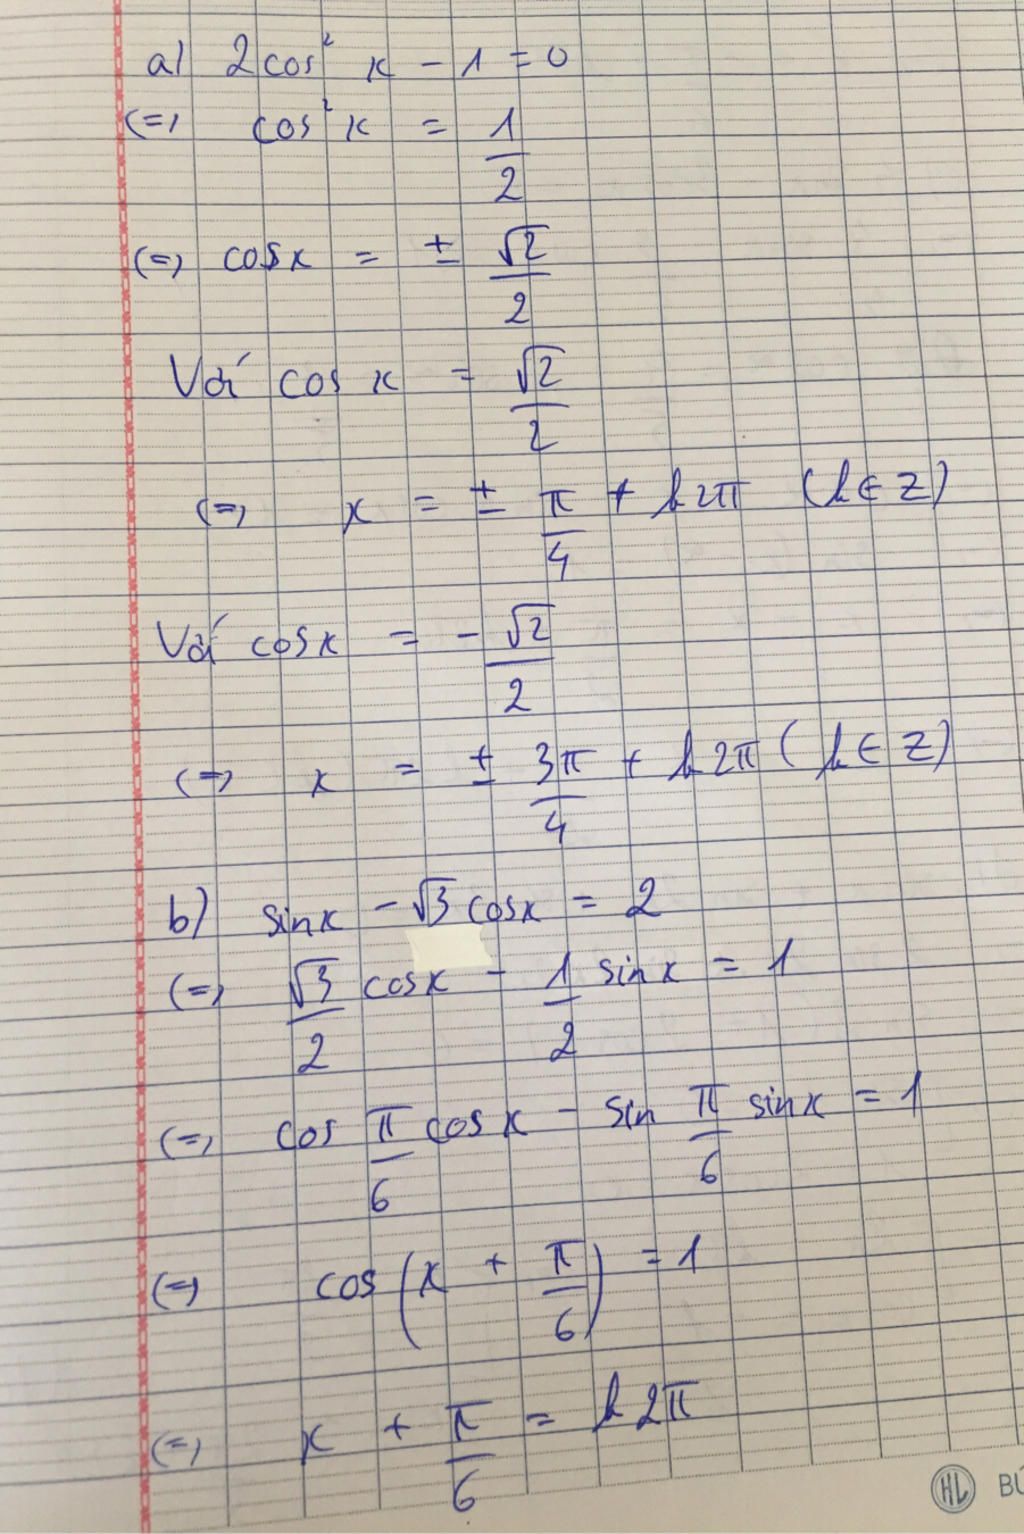 a) 2cos² x - 1 = 0
(=) cos² x = 1/2
(=) cosx = ± √2/2
Với cos x = √2/2
(=) x = ± π/4 + k2π (k ∈ Z)
Với cosx = - √2/2
(=) x = ± 3π/4 + k2π (k ∈ Z)
b) sinx - √3 cosx = 2
(=) √3/2 cosx - 1/2 sinx = 1
(=) cos π/6 cosx - sin π/6 sinx = 1
(=) cos(x + π/6) = 1
(=) x + π/6 = k2π
HL BÚ